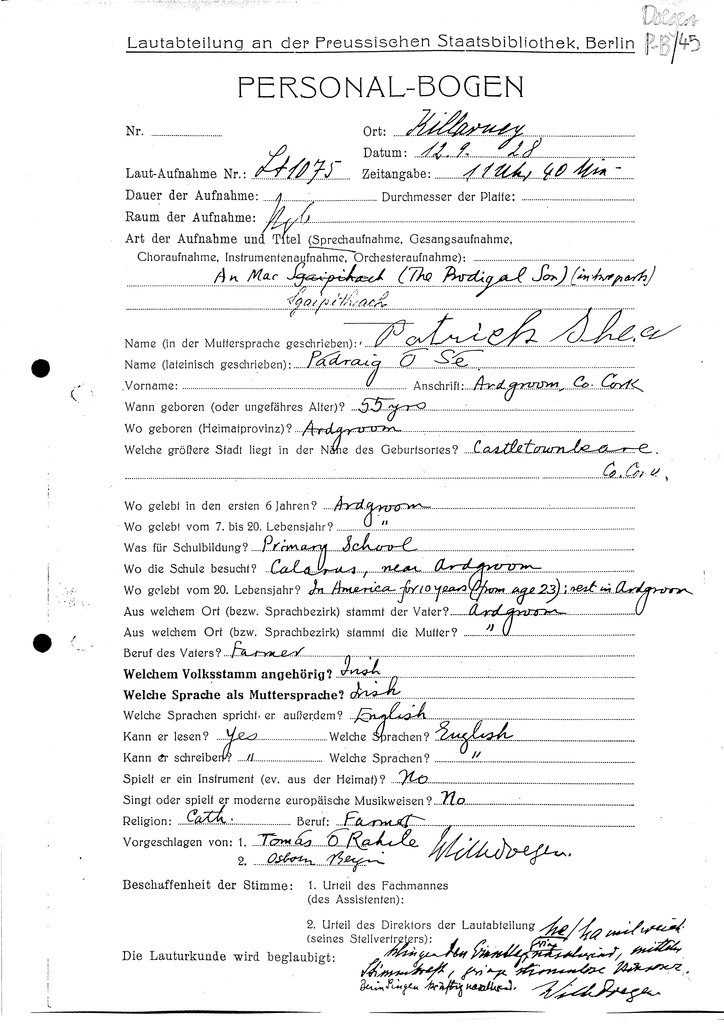 Doegen
P-B/45
Lautabteilung an der Preussischen Staatsbibliothek, Berlin
PERSONAL-BOGEN
Nr. Ort: Killarney
Datum: 12.9. 28
Laut-Aufnahme Nr.: LA 1075 Zeitangabe: 11 Uhr 40 Min-
Dauer der Aufnahme: Durchmesser der Platte:
Raum der Aufnahme:
Art der Aufnahme und Titel (Sprechaufnahme, Gesangsaufnahme,
Choraufnahme, Instrumentenaufnahme, Orchesteraufnahme):
An Mac Sgaipitheach (The Prodigal Son) (in two parts)
Sgaipitheach
Name (in der Muttersprache geschrieben): Patrick Shea
Name (lateinisch geschrieben): Pádraig Ó Sé
Vorname: Anschrift: Ardgroom, Co. Cork
Wann geboren (oder ungefähres Alter)? 55 yrs
Wo geboren (Heimatprovinz)? Ardgroom
Welche größere Stadt liegt in der Nähe des Geburtsortes? Castletownbeare.
Co. Cork.
Wo gelebt in den ersten 6 Jahren? Ardgroom
Wo gelebt vom 7. bis 20. Lebensjahr? "
Was für Schulbildung? Primary School
Wo die Schule besucht? Calaros, near Ardgroom
Wo gelebt vom 20. Lebensjahr? In America for 10 years (from age 23); rest in Ardgroom
Aus welchem Ort (bezw. Sprachbezirk) stammt der Vater? Ardgroom
Aus welchem Ort (bzw. Sprachbezirk) stammt die Mutter? "
Beruf des Vaters? Farmer
Welchem Volksstamm angehörig? Irish
Welche Sprache als Muttersprache? Irish
Welche Sprachen spricht er außerdem? English
Kann er lesen? Yes Welche Sprachen? English
Kann er schreiben? " Welche Sprachen? "
Spielt er ein Instrument (ev. aus der Heimat)? No
Singt oder spielt er moderne europäische Musikweisen? No
Religion: Cath. Beruf: Farmer
Vorgeschlagen von: 1. Tomás Ó Rahile Wilh Doegen.
2. Osborn Bergin
Beschaffenheit der Stimme: 1. Urteil des Fachmannes
(des Assistenten):
2. Urteil des Direktors der Lautabteilung
(seines Stellvertreters):
Die Lauturkunde wird beglaubigt:
Wilh Doegen